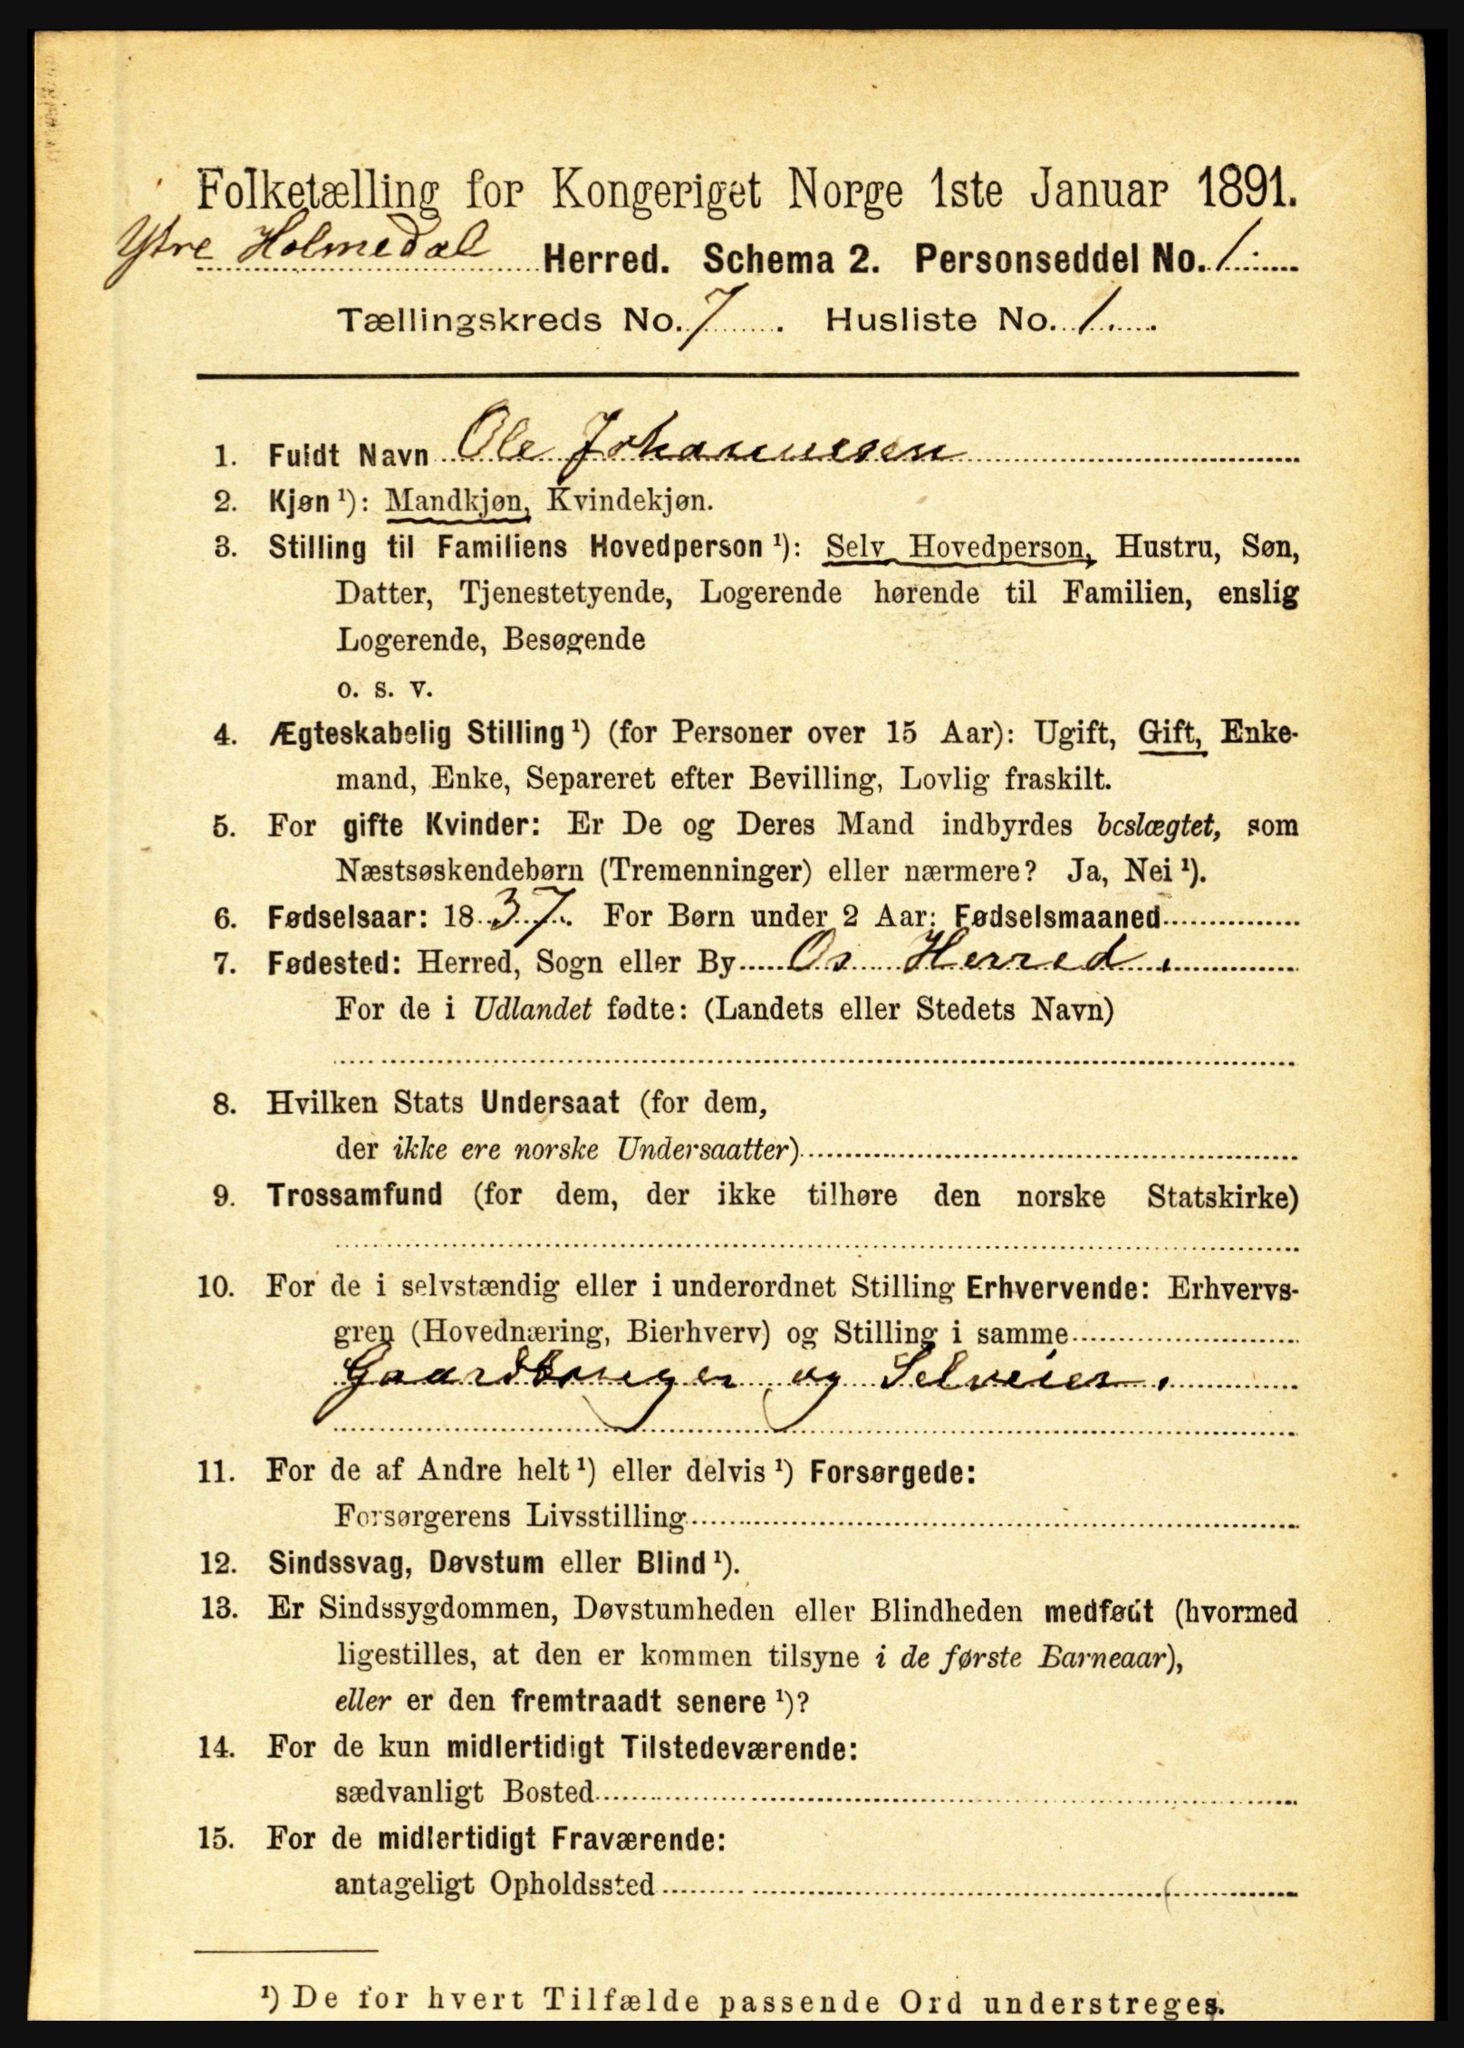 Folketælling for Kongeriget Norge 1ste Januar 1891.
Ytre Holmedal Herred. Schema 2. Personseddel No. 1.
Tællingskreds No. 7. Husliste No. 1.
1. Fuldt Navn Ole Johannesen
2. Kjøn ¹): Mandkjøn, Kvindekjøn.
3. Stilling til Familiens Hovedperson ¹): Selv Hovedperson, Hustru, Søn,
Datter, Tjenestetyende, Logerende hørende til Familien, enslig
Logerende, Besøgende
o. s. v.
4. Ægteskabelig Stilling ¹) (for Personer over 15 Aar): Ugift, Gift, Enke-
mand, Enke, Separeret efter Bevilling, Lovlig fraskilt.
5. For gifte Kvinder: Er De og Deres Mand indbyrdes beslægtet, som
Næstsøskendebørn (Tremenninger) eller nærmere? Ja, Nei ¹).
6. Fødselsaar: 1837. For Børn under 2 Aar: Fødselsmaaned
7. Fødested: Herred, Sogn eller By Os Herred.
For de i Udlandet fødte: (Landets eller Stedets Navn)
8. Hvilken Stats Undersaat (for dem,
der ikke ere norske Undersaatter)
9. Trossamfund (for dem, der ikke tilhøre den norske Statskirke)
10. For de i selvstændig eller i underordnet Stilling Erhvervende: Erhvervs-
gren (Hovednæring, Bierhverv) og Stilling i samme
Gaardbruger og Selveier.
11. For de af Andre helt ¹) eller delvis ¹) Forsørgede:
Forsørgerens Livsstilling
12. Sindssvag, Døvstum eller Blind ¹).
13. Er Sindssygdommen, Døvstumheden eller Blindheden medfødt (hvormed
ligestilles, at den er kommen tilsyne i de første Barneaar),
eller er den fremtraadt senere ¹)?
14. For de kun midlertidigt Tilstedeværende:
sædvanligt Bosted
15. For de midlertidigt Fraværende:
antageligt Opholdssted
¹) De for hvert Tilfælde passende Ord understreges.